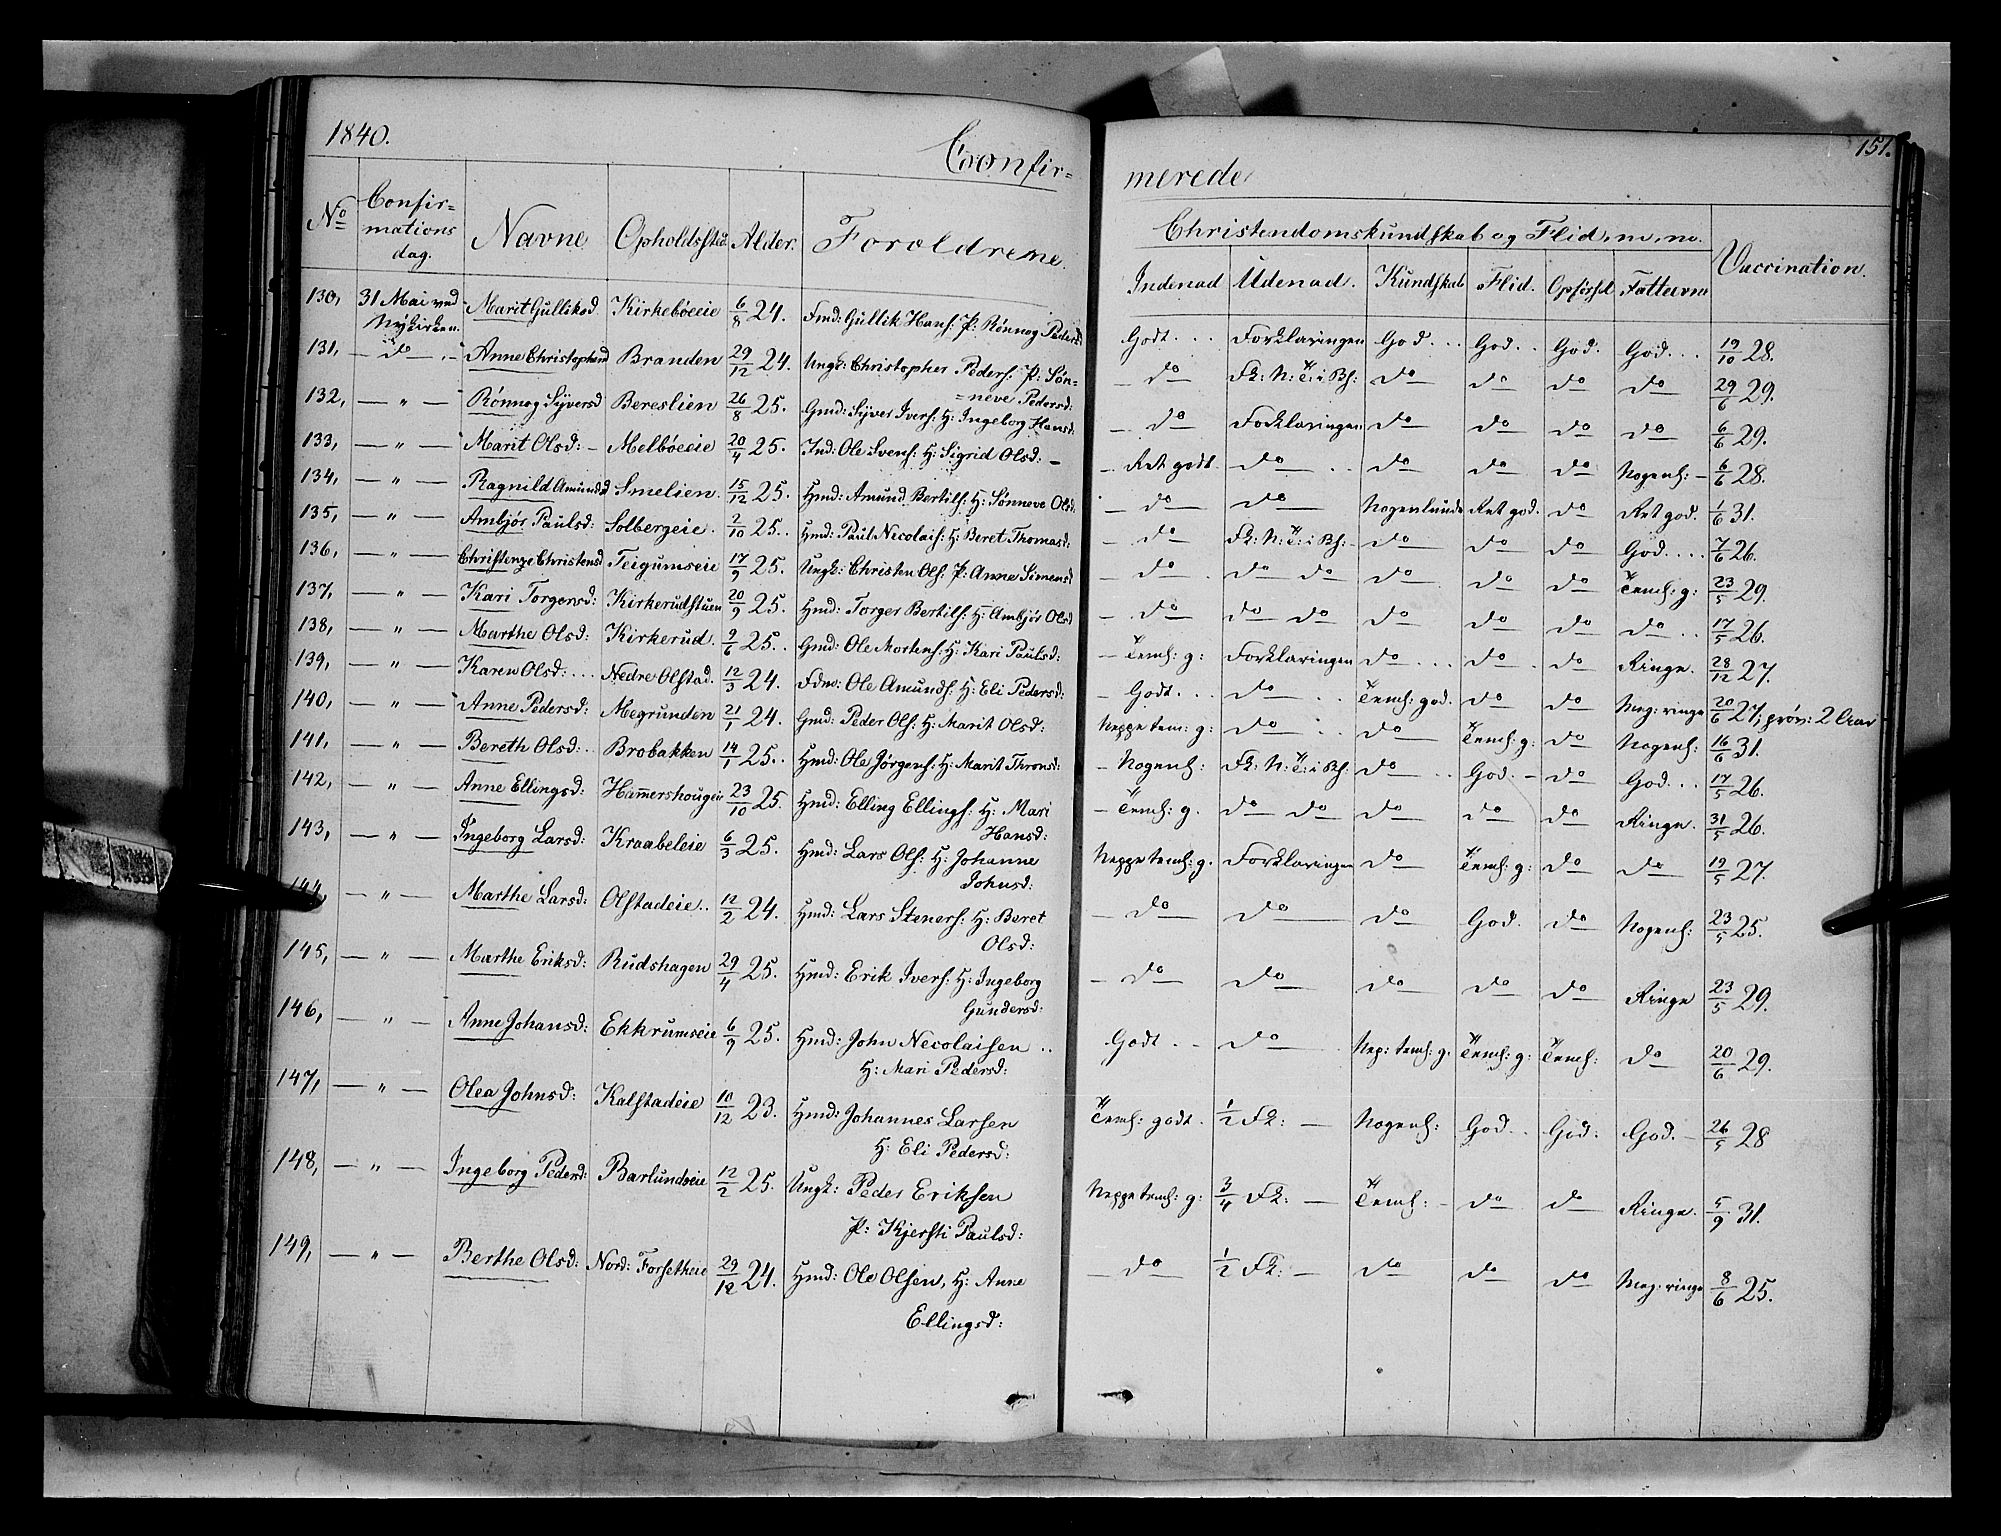 1840.
Confir=
merede
151.
No
Confir=
mations
dag.
Navne
Opholdssted
Alder.
Foreldrene.
Christendomskundskab og Flid, m, m.
Indenad
Udenad.
Kundskab
Flid.
Opførsel
Fatteevne
Vaccination.
130, 31 Mai ved Marit Gulliksd Kirkebøeeie 6/8 24. Fmd: Gullik Hans: P: Rønnog Pedersd Godt... Forklaringen God... God.. God. God... 19/10 28.
Nykirken.
131, — do — Anne Christophersd Branden 29/12 24. Ungk: Christopher Peders: P: Søn= — do — Fk: N: T: i Bh: do do do do 29/6 29.
=neve Pedersd:
132, — " — Rønnog Syversd Bereslien 26/8 25. Gmd: Syver Ivers: H: Ingeborg Hansd: — do Forklaringen do do do do 6/6 29.
133, — " — Marit Olsd: — Melbøeeie 20/4 25. Ind: Ole Svens: H: Sigrid Olsd: — — Ret godt. do .. do do do Nogenl: — 6/6 28.
134, — " — Ragnild Amundsd Smelien. 15/12 25. Hmd: Amund Bertils: H: Sønneve Olsd: — do do Nogenlunde Ret god. do Ret god. 1/6 31.
135, — " — Ambjør Paulsd: Solbergeie. 2/10 25.. Hmd: Paul Nicolais: H: Beret Thomasd: — do Fk: N: T: i Bh: — do do do God.... 7/6 26.
136, — " — Christenze Christensd Teigumseie 17/9 25. Ungk: Christen Ols: P: Anne Simensd — do . do do do . do do Teml: g: 23/5 29.
137, — " — Kari Torgersd: Kirkerudstuen 20/9 25. Hmd: Torger Bertils: H: Ambjør Olsd — do do do do do do do .. 17/5 26.
138, — " — Marthe Olsd: Kirkerud. 9/6 25.. Gmd: Ole Mortens: H: Kari Paulsd: — Teml: g: Forklaringen do ... do . do Ringe. 28/12 27.
139, — " — Karen Olsd: ... Nedre Olstad. 12/3 24. Fdm: Ole Amunds: H: Eli Pedersd: — Godt... do .. Teml: god. do do Meg: ringe 20/6 27, prøv: 2 Aar
140, — " — Anne Pedersd: Megrunden 21/1 24. Gmd: Peder Ols: H: Marit Olsd: Neppe tem: g: do .. do Teml: g: do Nogenl: 16/6 31.
141, — " — Bereth Olsd: .. Brobakken 14/1 25.. Hmd: Ole Jørgens: H: Marit Thronsd: — Nogenl: Fk: N: T: i Bh: do .. God. — do God... 17/5 26.
142, — " — Anne Ellingsd: Hammershougeie 23/10 25. Hmd: Elling Ellings: H: Mari — Teml: g. do do do do do Ringe. 31/5 26.
Hansd:
143, — " — Ingeborg Larsd: Kraabeleie 6/3 25. Hmd: Lars Ols: H: Johanne Neppe teml: g. Forklaringen do Teml: g: do do 19/5 27.
Johnsd:
144, — " — Marthe Larsd: Olstadeie.. 12/2 24. Hmd: Lars Steners: H: Beret — do do do God. do Nogenl: 23/5 25.
Olsd:
145, — " — Marthe Eriksd: Rudshagen 29/4 25. Hmd: Erik Ivers: H: Ingeborg — do do do do do Ringe 23/5 29.
Gundersd:
146, — " — Anne Johansd: Ekkrumseie 6/9 25. Hmd: John Necolaisen .. Godt.. do . Nep: teml: g. Teml: g: Teml: do 20/6 29.
H: Mari Pedersd:
147, — " — Olea Johnsd: Kalstadeie 10/12 23. Hmd: Johannes Larsen Teml: godt. 1/2 Fk: — Nogenl: God.. God: God. — 26/5 28
H: Eli Pedersd:
148, — " — Ingeborg Pedersd: Barlundeie 12/2 25. Ungk: Peder Eriksen Neppe teml: g: 3/4 Fk: — Teml: — do do Ringe. 5/9 31.
P: Kjersti Paulsd:
149, — " — Berthe Olsd: Nord: Forsetheie 29/12 24. Hmd: Ole Olsen, H: Anne — do 1/2 Fk: — do do do Meg: ringe 8/6 25.
Ellingsd: